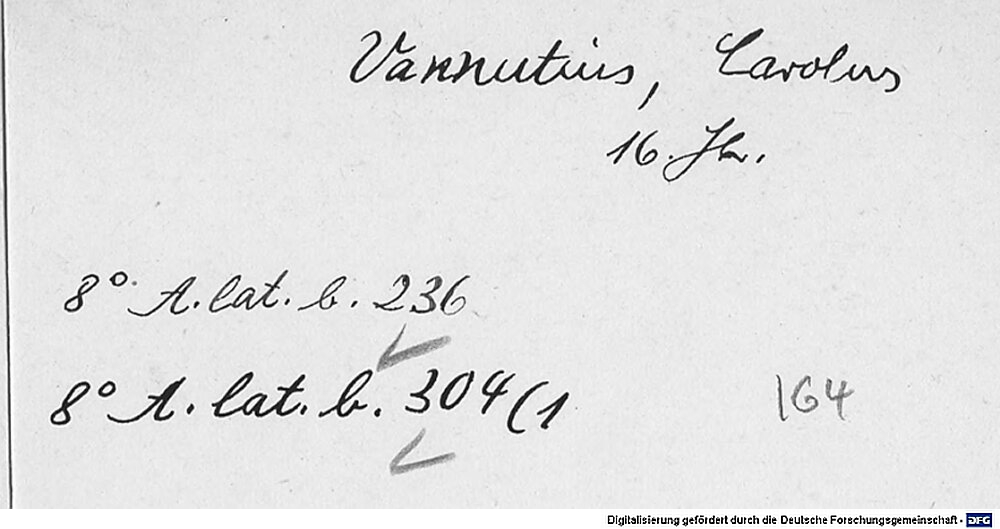 Vannutius, Carolus
16. Jh.
8° A. lat. b. 236
8° A. lat. b. 304(1
164
Digitalisierung gefördert durch die Deutsche Forschungsgemeinschaft - DFG